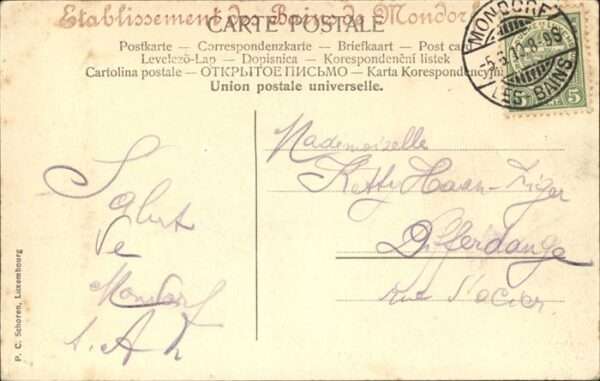 Etablissement des Bains de Mondorf
CARTE POSTALE
Postkarte — Correspondenzkarte — Briefkaart — Post card
Levelező-Lap — Dopisnica — Korespondenční lístek
Cartolina postale — ОТКРЫТОЕ ПИСЬМО — Karta Korespondencyjna
Union postale universelle.
MONDORF
LES-BAINS
5
Mademoiselle
Ketty Haan-
Differdange
rue
Salut
de
Mondorf
P. C. Schoren, Luxembourg